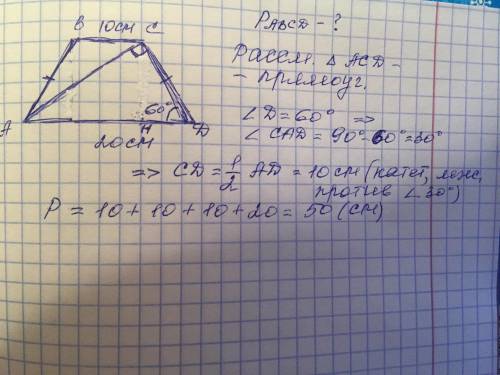 B 10см C
60°
A H D
20см
PABCD - ?
Рассм. Δ ACD -
- прямоуг.
∠D = 60° =>
∠CAD = 90° - 60° = 30°
=> CD = 1/2 AD = 10см (катет, леж.
против ∠30°)
P = 10 + 10 + 10 + 20 = 50 (см)